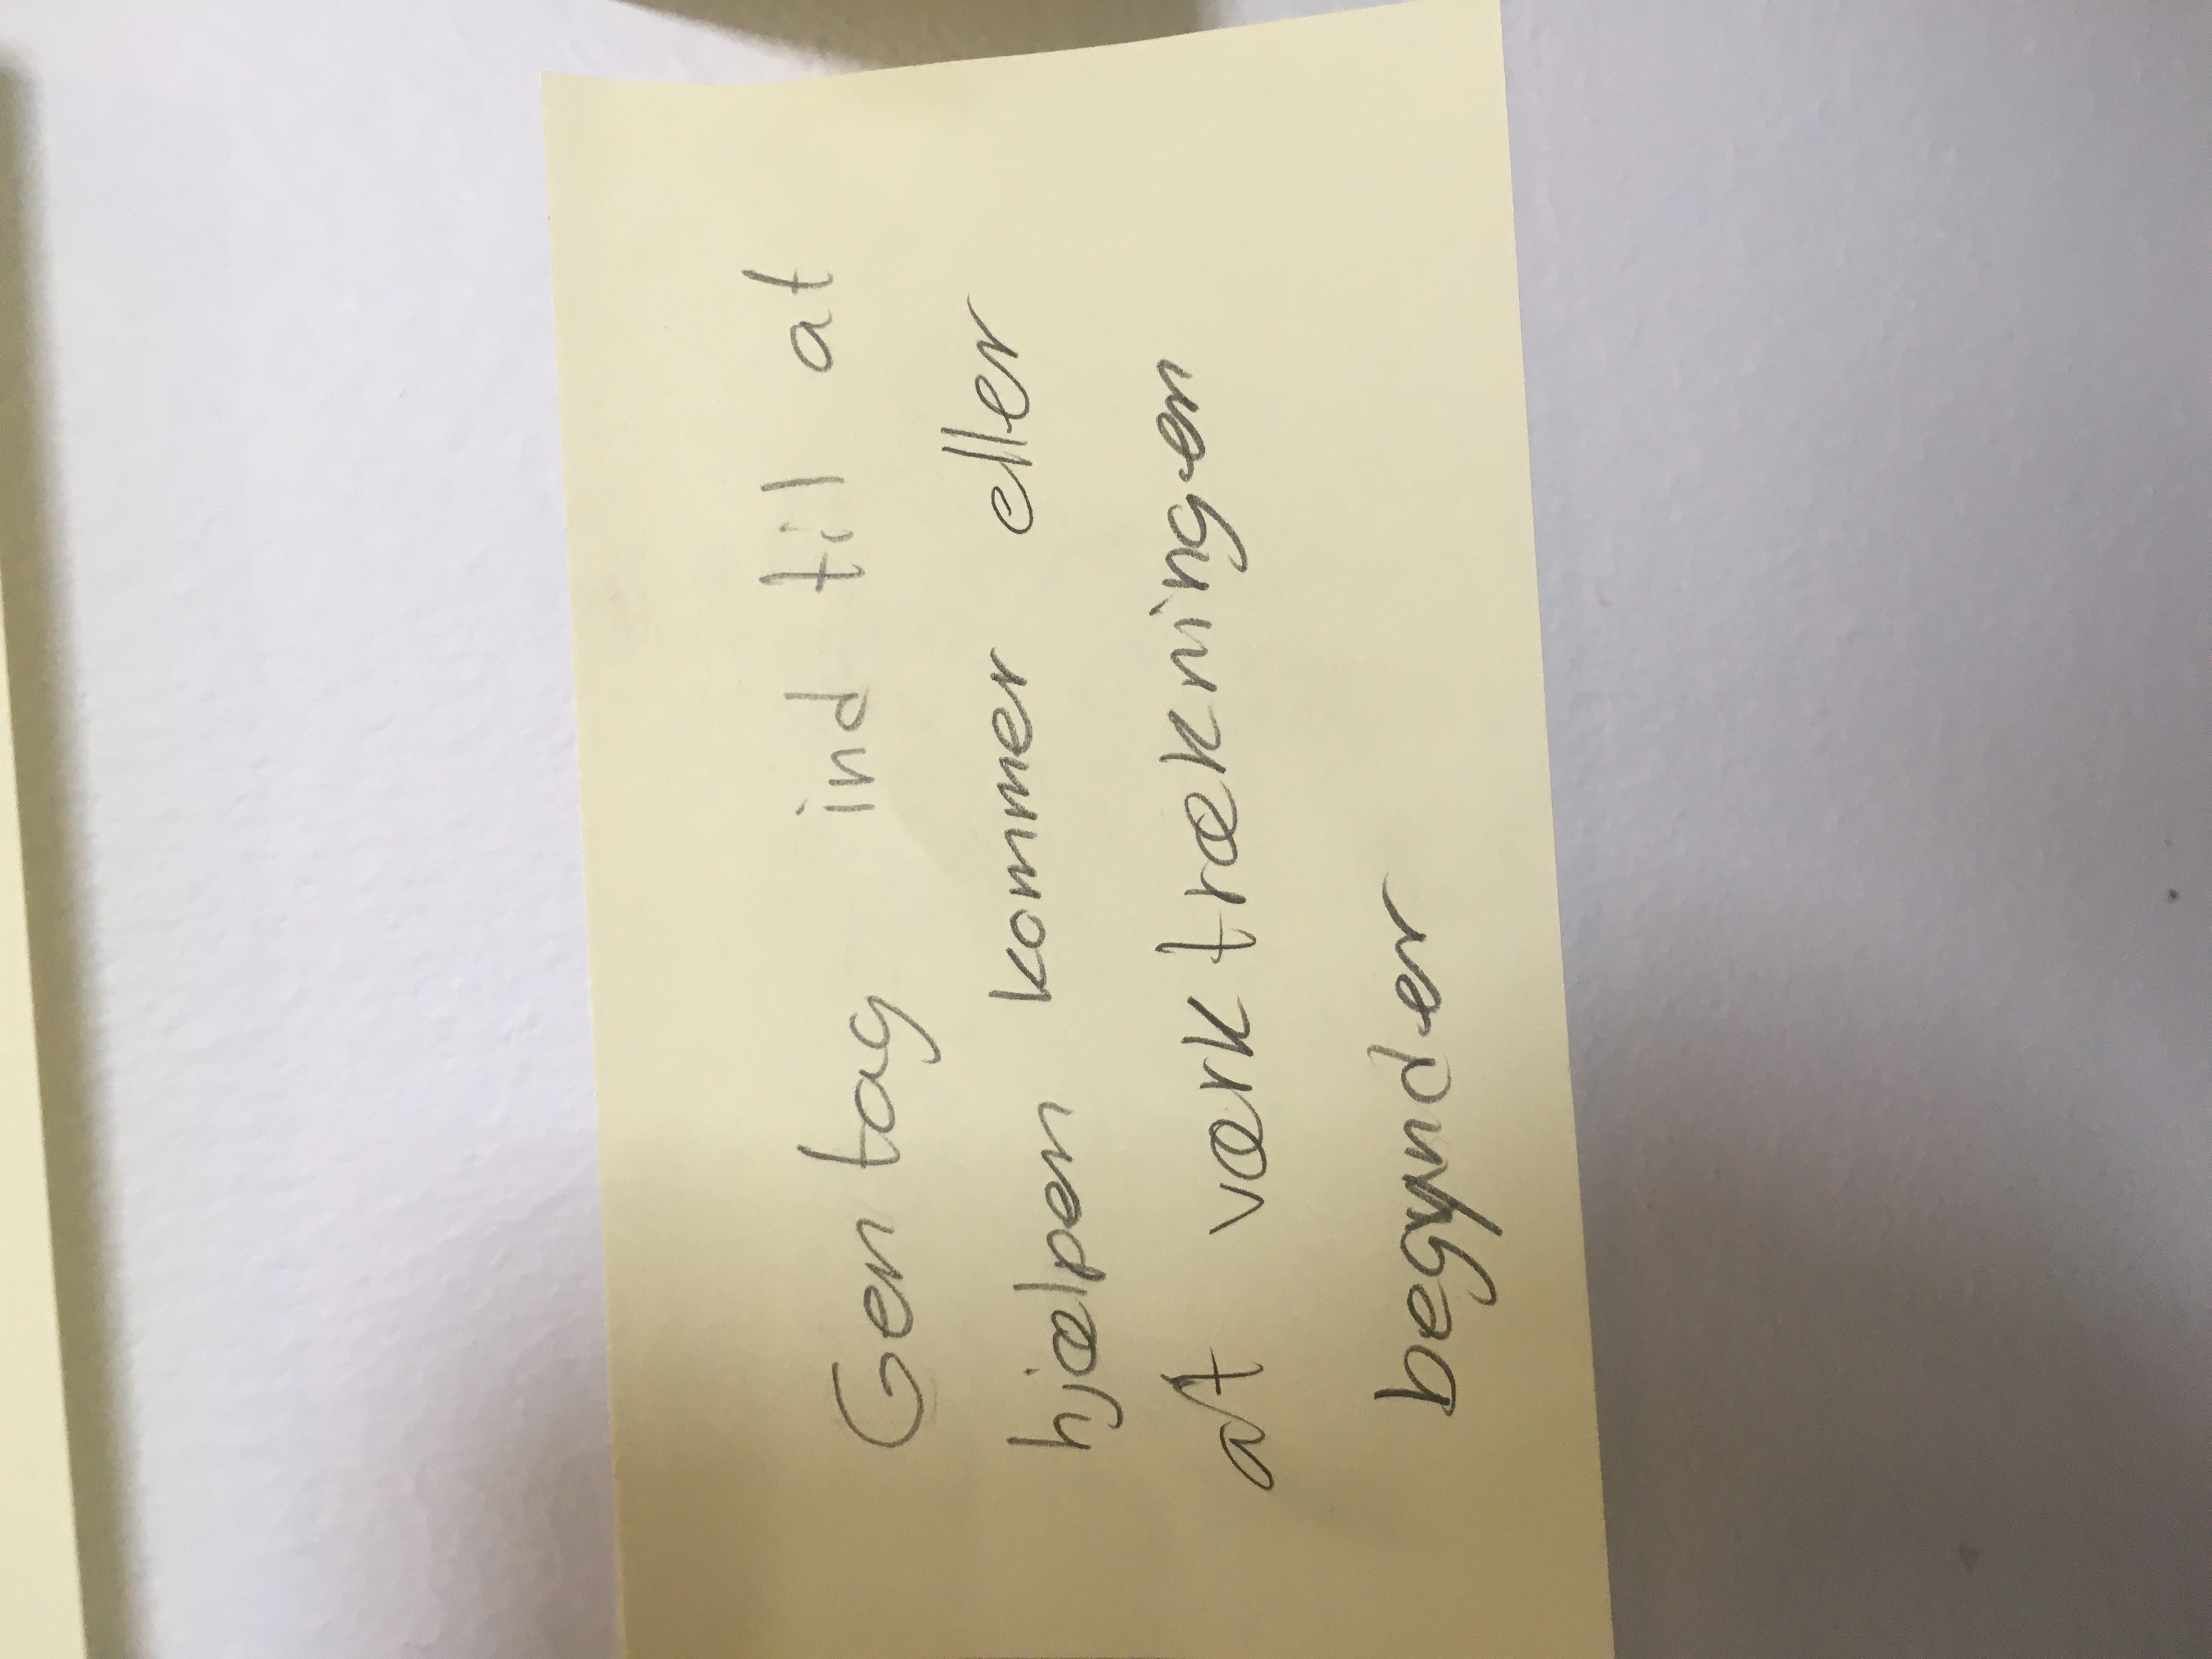 Gentag ind til at
hjælpen kommer eller
at værktrækningen
begynder